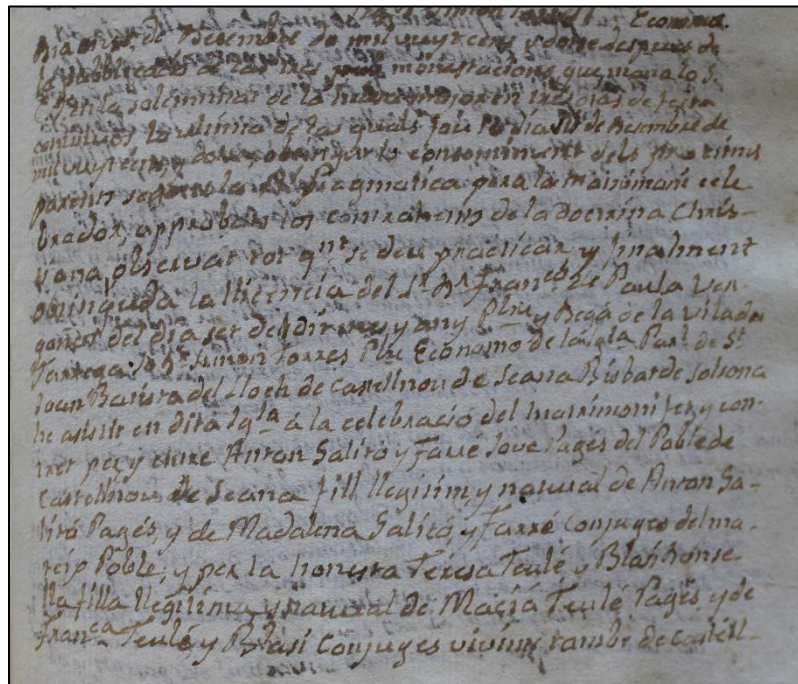 Economo.
Dia onse de Desembre de mil vuyt cens y dotse despues de
la Publicació de las tres monestracions que mana lo S.
C. en la solemnitat de la missa major en tres dias de festa
continuos la ultima de las quals fou lo dia de Desembre de
mil vuyt cens y dotse, obtingut lo consentiment dels proxims
parents segons la Rl. Pragmatica pera la matrimoni cele
brador, approbats los contrahents de la Doctrina Chris-
tiana, observat tot qnt. se deu practicar y finalment
obtinguda la llicencia del Sr. Dr. Franco. de Paula Ver-
gonós del dia set del dit mes y any Pbre. y Degá de la Vila de
Tarrega: Jo Simon Torres Pbre Economo de la Igla. Parl. de St.
Joan Batista del Lloch de Castellnou de Seana Bisbat de Solsona
he asistit en dita Igla. á la celebració del matrimoni fet, y con-
tret per, y entre Anton Salitó y Farré Jove Pagés del Poble de
Castellnou de Seana fill llegitim y natural de Anton Sa-
litó Pagés, y de Madalena Salitó, y Farré Conjuges del ma-
teix Poble, y per la honesta Teresa Teulé y Blasi donse
lla filla llegitima y natural de Maciá Teulé Pagés y de
Franca. Teulé, y Blasi Conjuges vivints també de Castell-